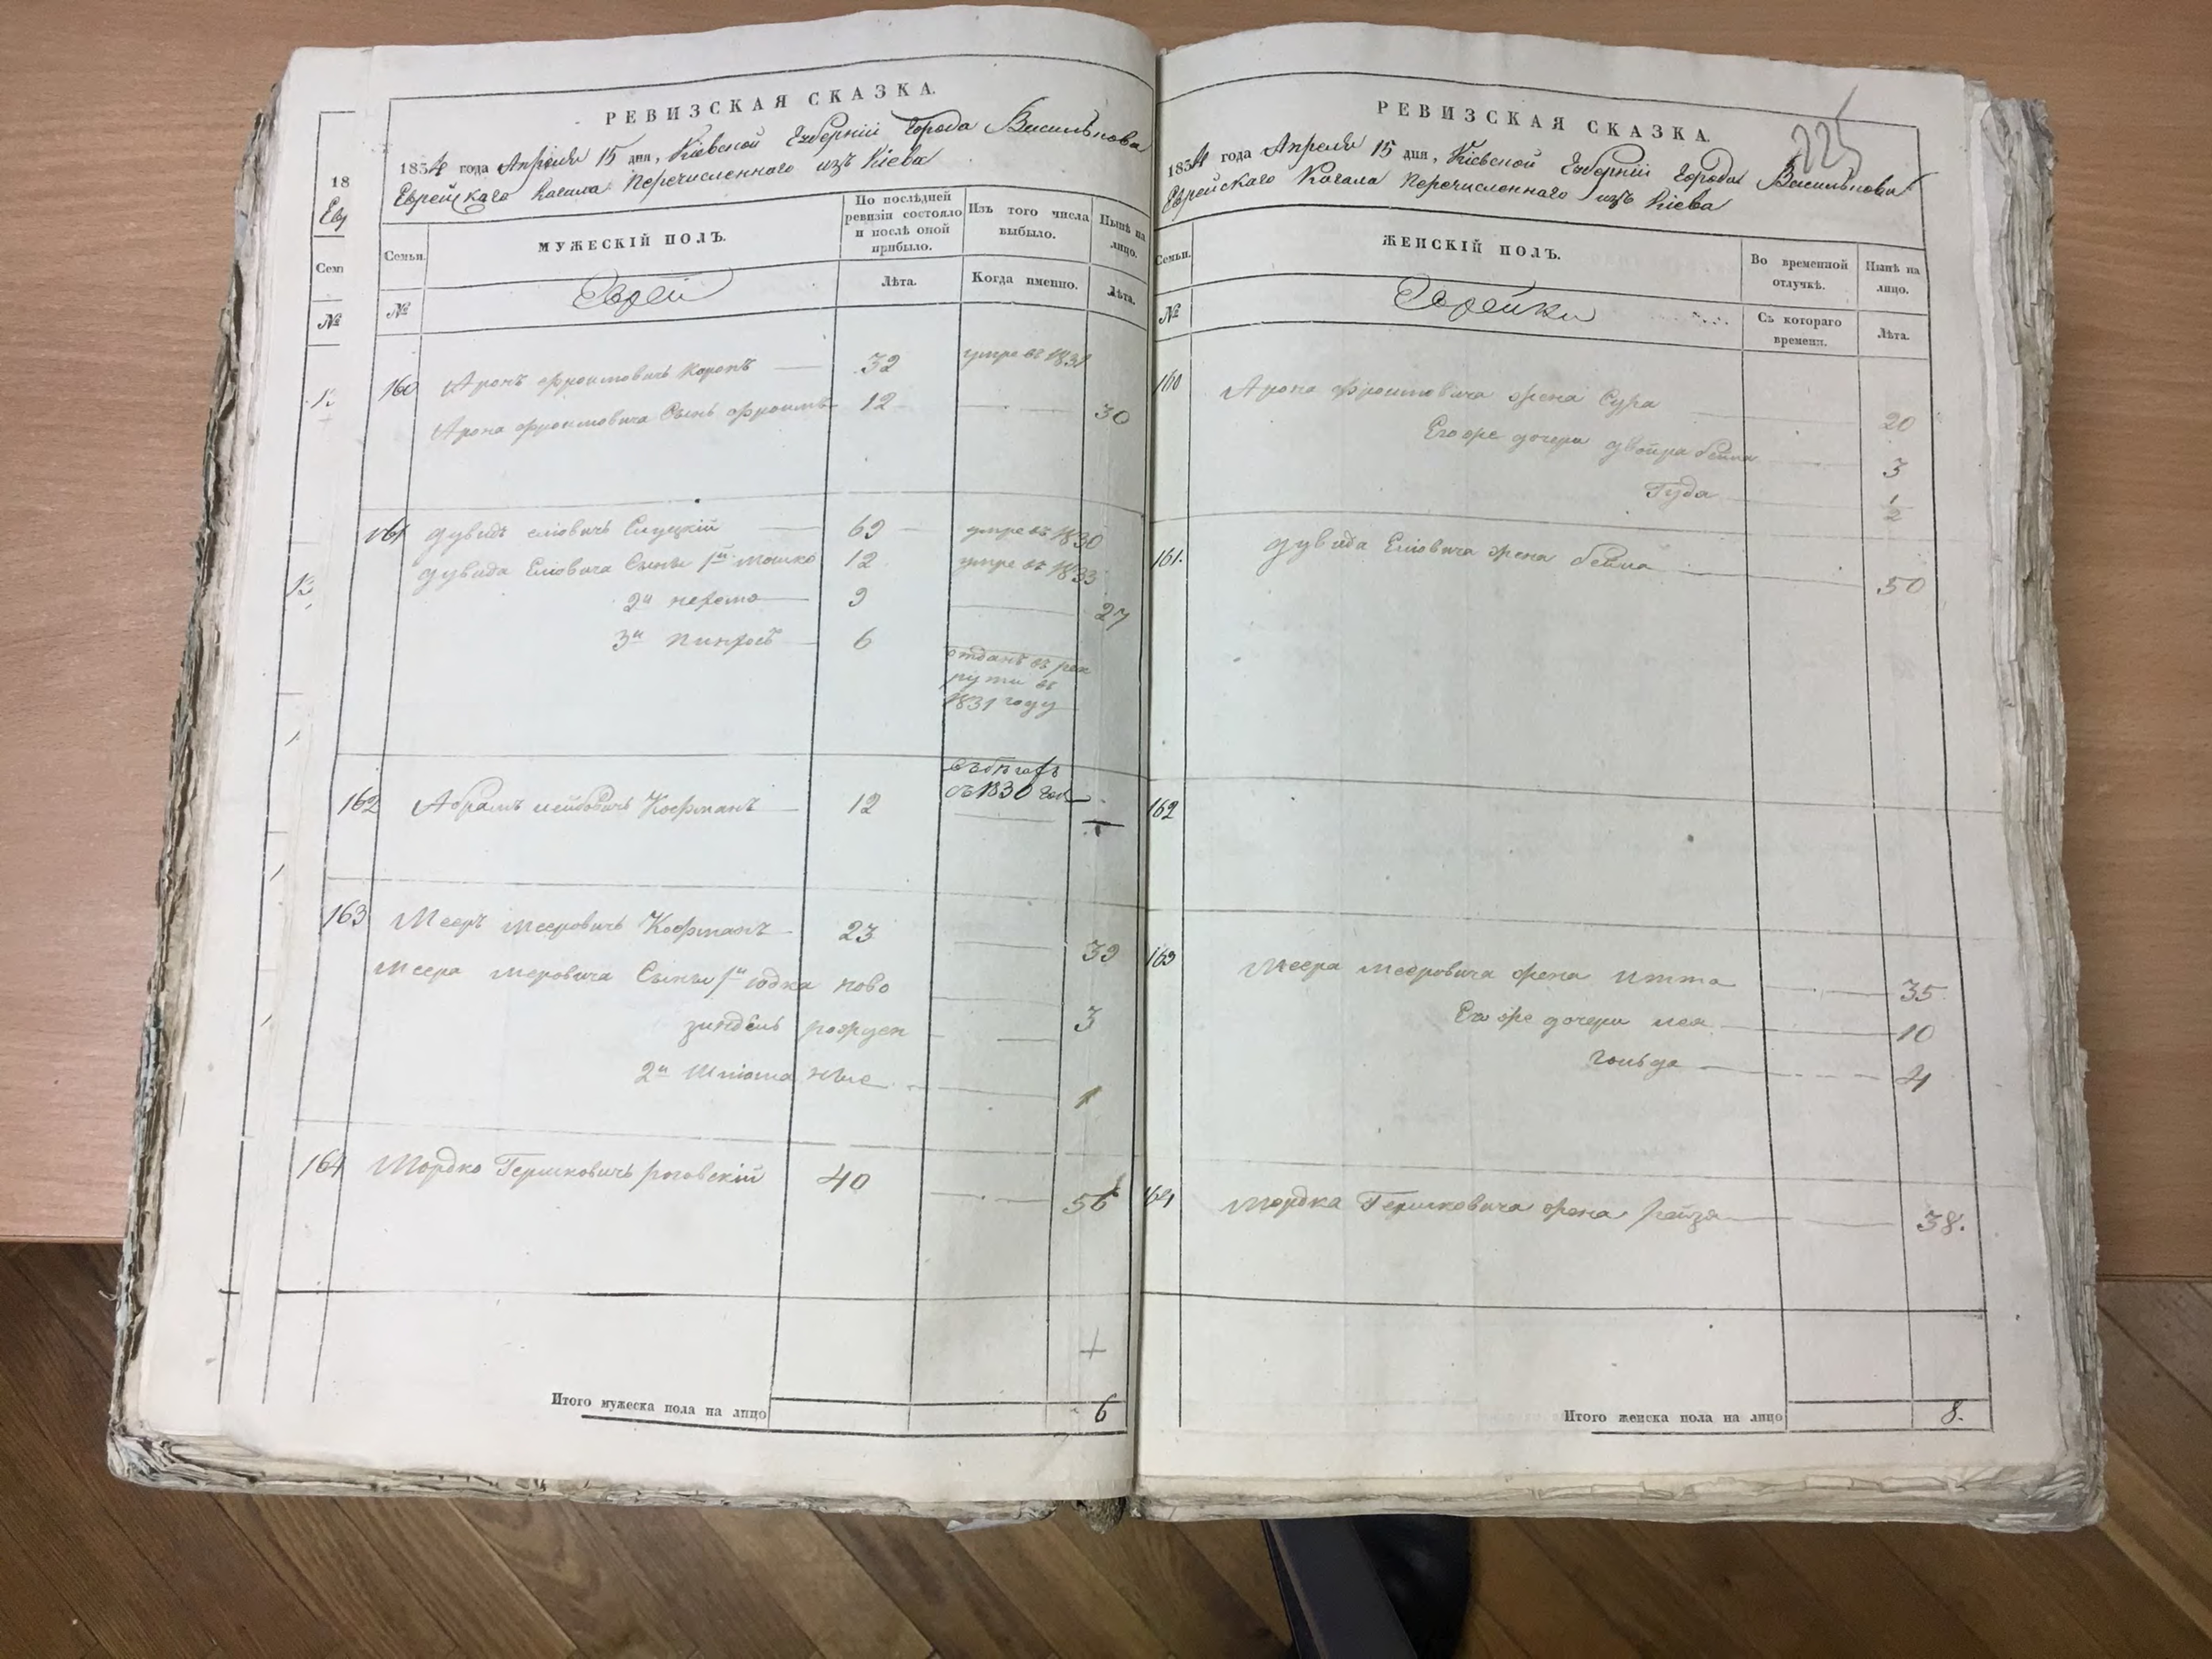 18
Евр
Сем
№
РЕВИЗСКАЯ СКАЗКА.
1834 года Апреля 15 дня, Кіевской Губерніи Города Василькова
Еврейскаго Кагала Перечисленнаго изъ Кіева
Семьи.
МУЖЕСКІЙ ПОЛЪ.
По послѣдней ревизіи состояло и послѣ оной прибыло.
Изъ того числа выбыло.
Нынѣ на лицо.
№
Еврей
Лѣта.
Когда именно.
Лѣта.
160 Аронъ Фроимовичъ Коропъ 32 умре въ 1831
Арона Фроимовича Сынъ Фроимъ 12 30
161 Дувидъ Еліовичъ Слуцкій 69 умре въ 1830
Дувида Еліовича Сыны 1й Мошко 12 умре въ 1833
2й 9 27
3й Пинхосъ 6 отданъ въ рек
руты въ
1831 году
162 Абрамъ Лейбовичъ Кофманъ 12 въ бегахъ
съ 1830 года
163 Мееръ Мееровичъ Кофманъ 23 39
Меера Меровича Сыны 1й Юдка ново
зиндель рожден 3
2й Шлiома ные 1
164 Мордко Гершковичъ Роговскій 40 56
Итого мужеска пола на лицо 6
225
РЕВИЗСКАЯ СКАЗКА.
1834 года Апреля 15 дня, Кіевской Губерніи Города Василькова
Еврейскаго Кагала Перечисленнаго изъ Кіева
Семьи.
ЖЕНСКІЙ ПОЛЪ.
Во временной отлучкѣ.
Нынѣ на лицо.
№
Еврейки
Съ котораго времени.
Лѣта.
160 Арона Фроимовича жена Сура 20
Его же дочери Двойра бейла 3
Гуда 1/2
161. Дувида Еліовича жена бейла 50
162
163 Меера Мееровича жена Итта 35
Его же дочери Лея 10
Гольда 4
164 Мордка Гершковича жена Рейзя 38.
Итого женска пола на лицо 8.